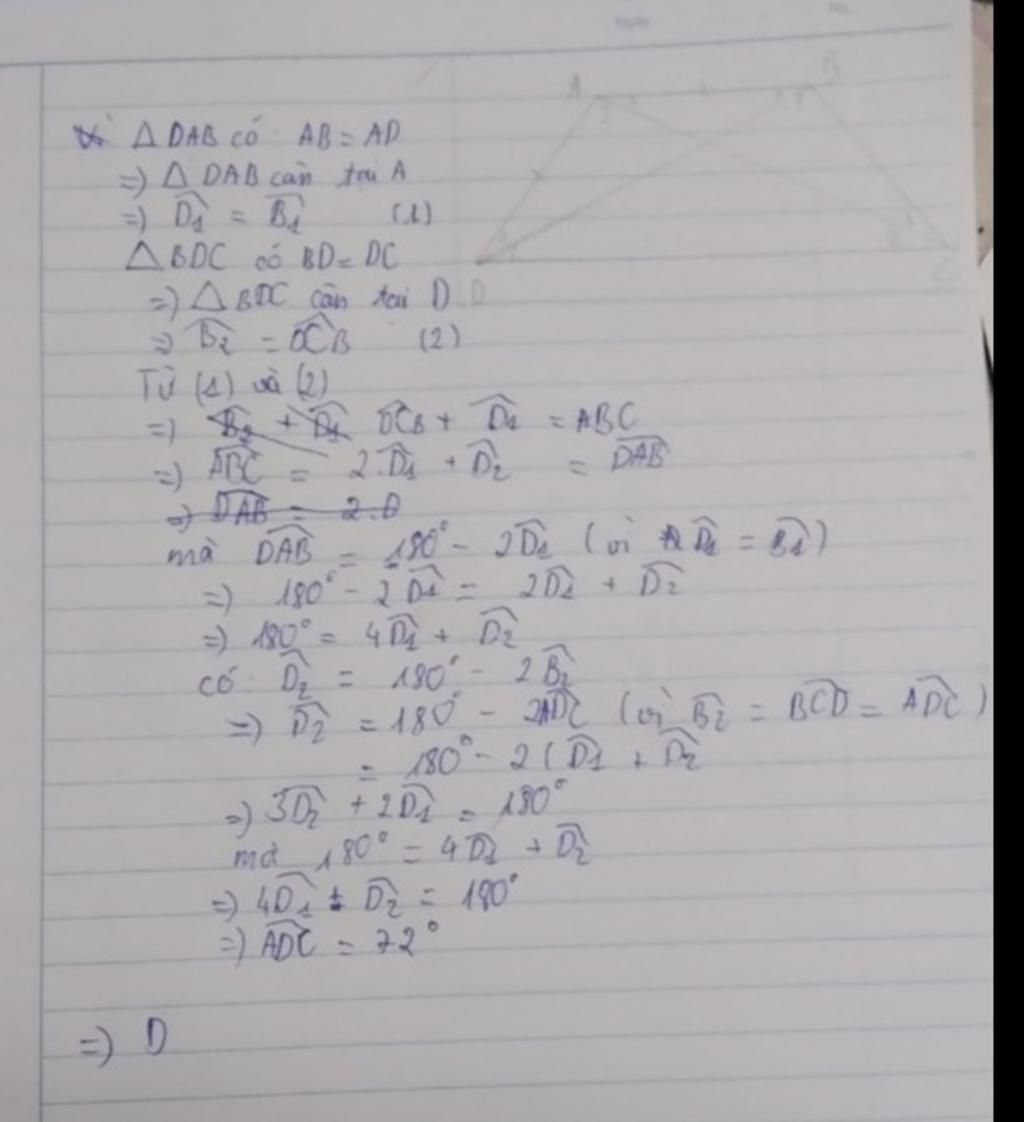 Ngày
No.
A
B
△DAB có AB = AD
=) △ DAB cân tại A
=) D̂1 = B̂1 (1)
△BDC có BD = DC
=) △BDC cân tại D
D
C
=) B̂2 = D̂CB (2)
Từ (1) và (2)
=) B̂2 + D̂1 D̂CB + D̂1 = ABC
=) ÂBC = 2.D̂1 + D̂2 = D̂AB
=) D̂AB = 2.D
mà D̂AB = 180° - 2D̂1 (vì D̂1 = B̂1)
=) 180° - 2D̂1 = 2D̂1 + D̂2
=) 180° = 4D̂1 + D̂2
có: D̂2 = 180° - 2B̂2
=) D̂2 = 180° - 2ÂDC (vì B̂2 = B̂CD = ÂDC)
= 180° - 2(D̂1 + D̂2
=) 3D̂2 + 2D̂1 = 180°
mà 180° = 4D̂1 + D̂2
=) 4D̂1 + D̂2 = 180°
=) ÂDC = 72°
=) D